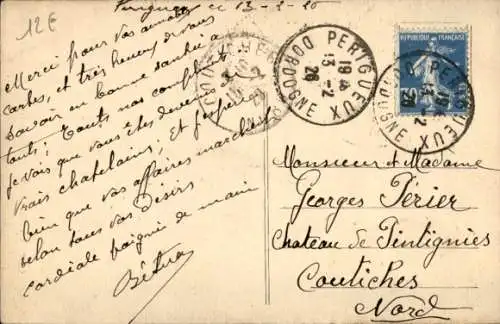 12€
Périgueux ce 13-2-26
Merci pour vos aimables
cartes, et très heureux de vous
savoir en bonne santé à
tous; Tout nos compliments
je vois que vous êtes devenus
vrais chatelains, et j'espère
bien que vos affaires marchent
selon tous vos désirs
cordiale poignée de main
PERIGUEUX
19
13 -2
26
DORDOGNE
REPUBLIQUE FRANÇAISE
PERIGUEUX
19
13 -2
26
DORDOGNE
Monsieur et Madame
Georges Périer
Chateau de Pintignies
Coutiches
Nord